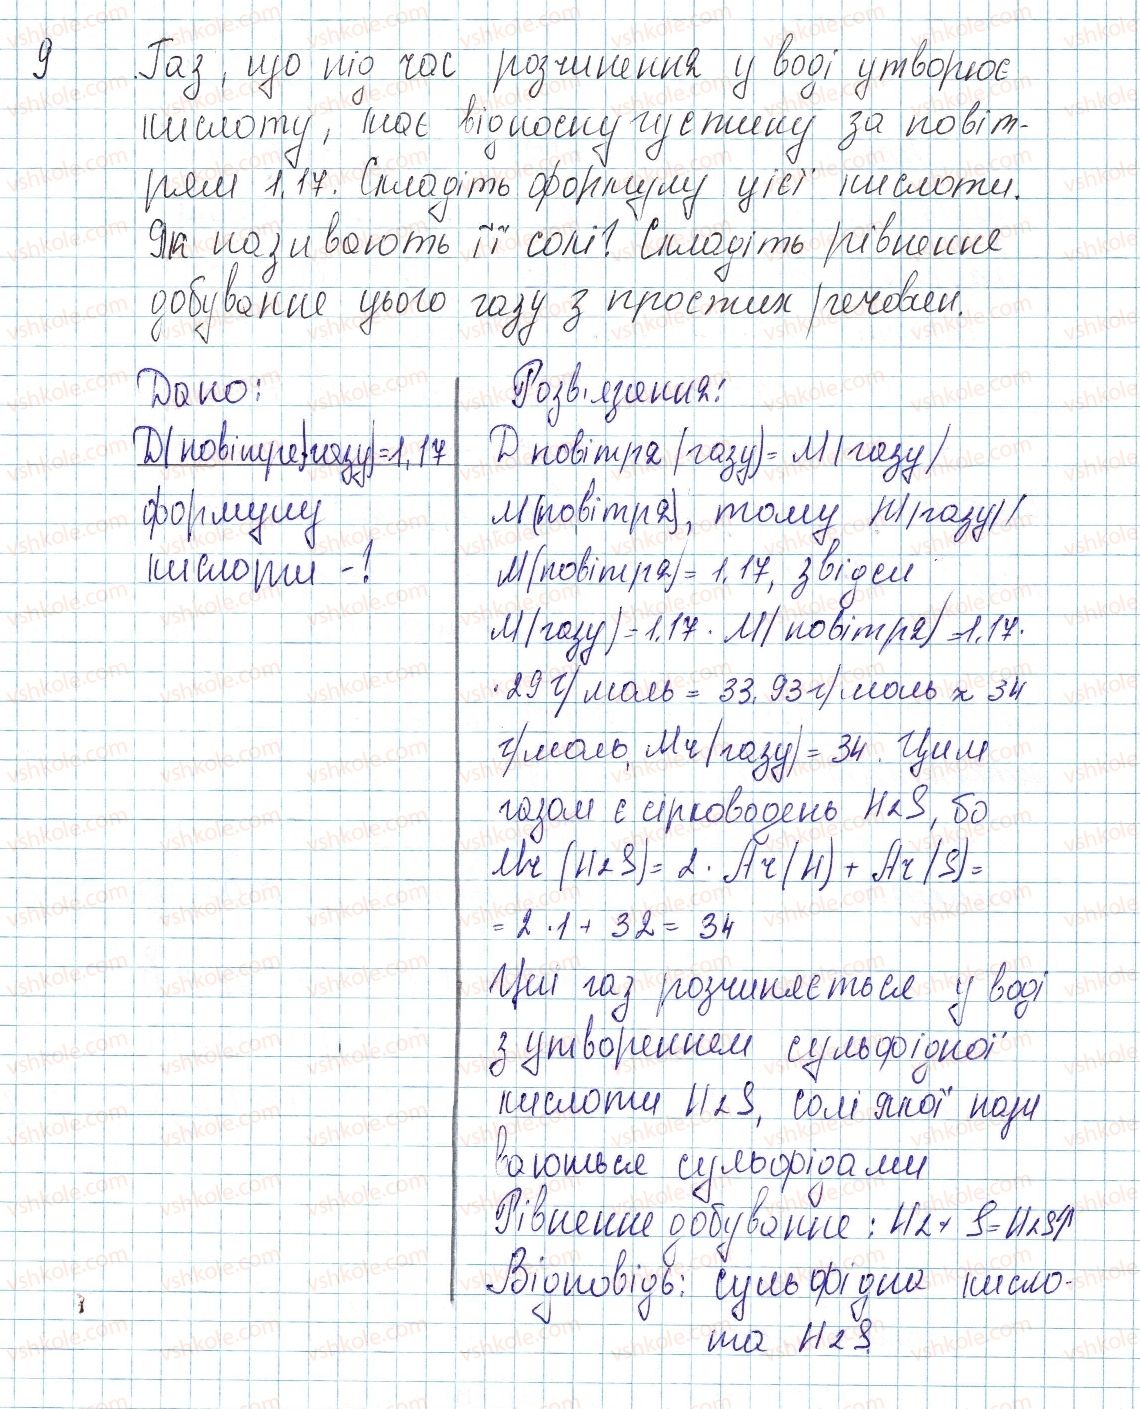 9
Газ, що під час розчинення у воді утворює
кислоту, має відносну густину за повіт-
рям 1,17. Складіть формулу цієї кислоти.
Як називають її солі? Складіть рівнення
добування цього газу з простих речовин.
Дано:
D(повітря)(газу)=1,17
формулу
кислоти -?
Розв'язання:
D повітря (газу)= M(газу)/
M(повітря), тому M(газу)/
M(повітря)= 1,17, звідси
M(газу)=1,17 · M(повітря)=1,17·
·29 г/моль = 33,93 г/моль ≈ 34
г/моль, Mr(газу)= 34. Цим
газом є сірководень H2S, бо
Mr (H2S)= 2 · Ar(H) + Ar(S)=
= 2 · 1 + 32 = 34
Цей газ розчиняється у воді
з утворенням сульфідної
кислоти H2S, солі якої нази
ваються сульфідами
Рівнення добування: H2 + S = H2S↑
Відповідь: сульфідна кисло-
та H2S